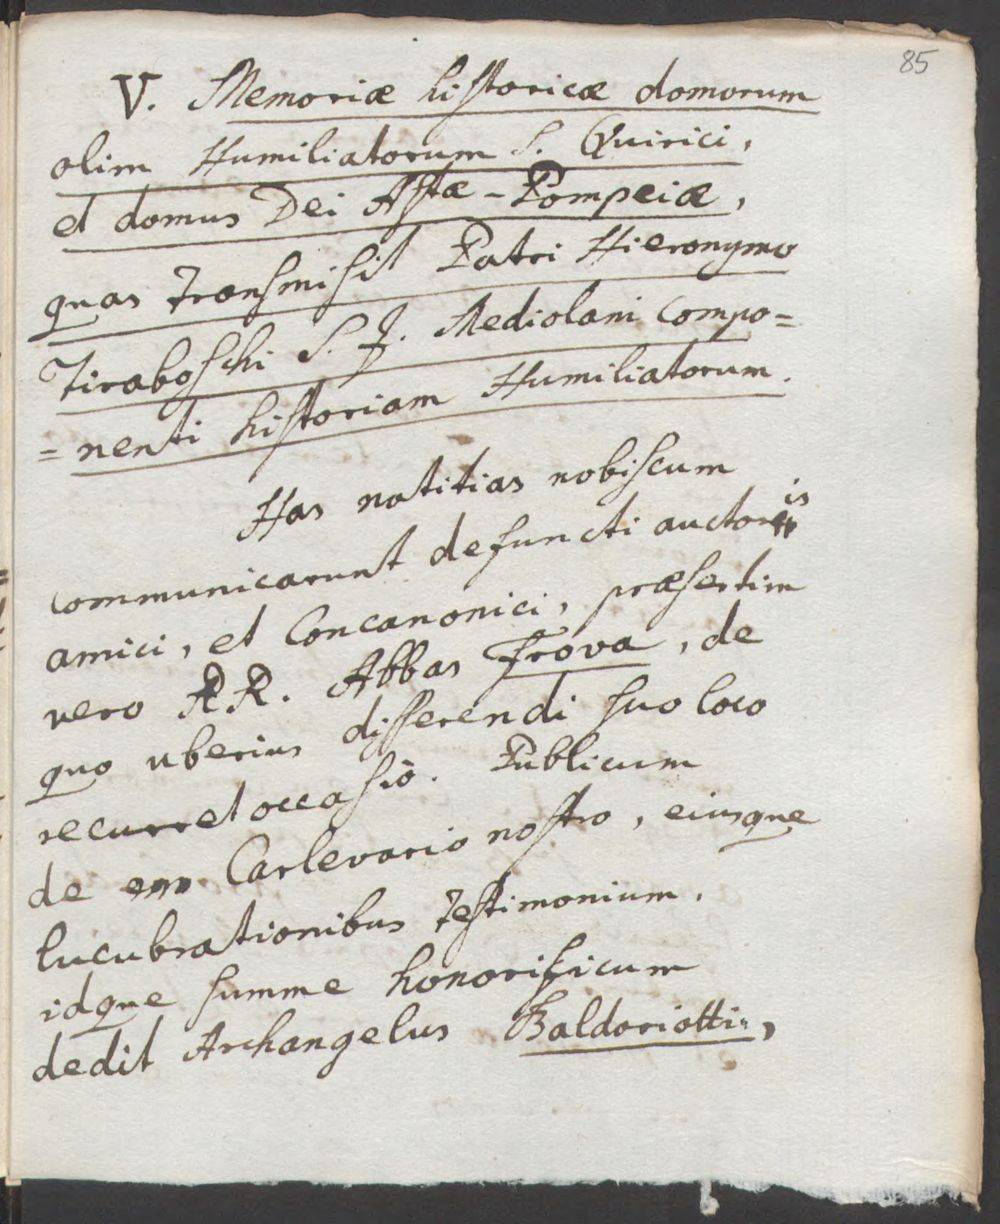 85
V. Memoriæ historicæ domorum
olim Humiliatorum S. Quirici,
et domus Dei Astæ-Pompeiæ,
quas transmisit Patri Hieronymo
Tiraboschi S. J. Mediolani compo=
=nenti historiam Humiliatorum.
Has notitias nobiscum
communicarunt defuncti auctoris
amici, et Concanonici, præsertim
vero RR. Abbas Frova, de
quo uberius disserendi suo loco
recurret occasio. Publicum
de Carlevario nostro, eiusque
lucubrationibus testimonium,
idque summe honorificum
dedit Archangelus Baldoriotti,